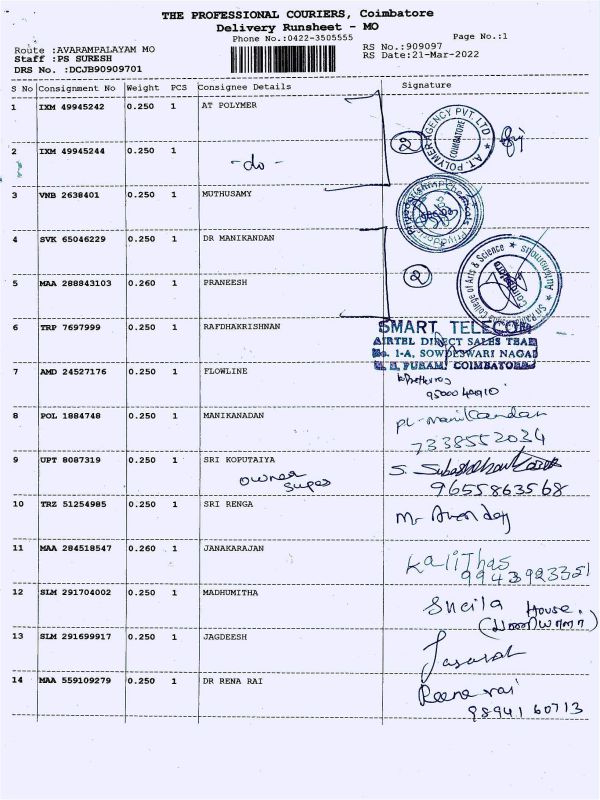 THE PROFESSIONAL COURIERS, Coimbatore
Delivery Runsheet - MO
Phone No.:0422-3505555
Page No.:1
Route :AVARAMPALAYAM MO
RS No.:909097
Staff :PS SURESH
RS Date:21-Mar-2022
DRS No. :DCJB90909701
S No Consignment No Weight PCS Consignee Details Signature
1 IXM 49945242 0.250 1 AT POLYMER
A.T. POLYMER AGENCY PVT. LTD
COIMBATORE
2
2 IXM 49945244 0.250 1
-do-
3 VNB 2638401 0.250 1 MUTHUSAMY
4 SVK 65046229 0.250 1 DR MANIKANDAN
College of Arts & Science
Autonomous
Coimbatore
2
5 MAA 288843103 0.260 1 PRANEESH
6 TRP 7697999 0.250 1 RAFDHAKRISHNAN
SMART TELECOM
AIRTEL DIRECT SALES TEAM
No. 1-A, SOWDESWARI NAGAR
PURAM, COIMBATORE
7 AMD 24527176 0.250 1 FLOWLINE
8 POL 1884748 0.250 1 MANIKANADAN
pl-manikandan
7338552034
9 UPT 8087319 0.250 1 SRI KOPUTAIYA
owner
9655863568
10 TRZ 51254985 0.250 1 SRI RENGA
11 MAA 284518547 0.260 1 JANAKARAJAN
Kalithas
9943923351
12 SLM 291704002 0.250 1 MADHUMITHA
Sheila House.
13 SLM 291699917 0.250 1 JAGDEESH
14 MAA 559109279 0.250 1 DR RENA RAI
Reena rai
9894160713